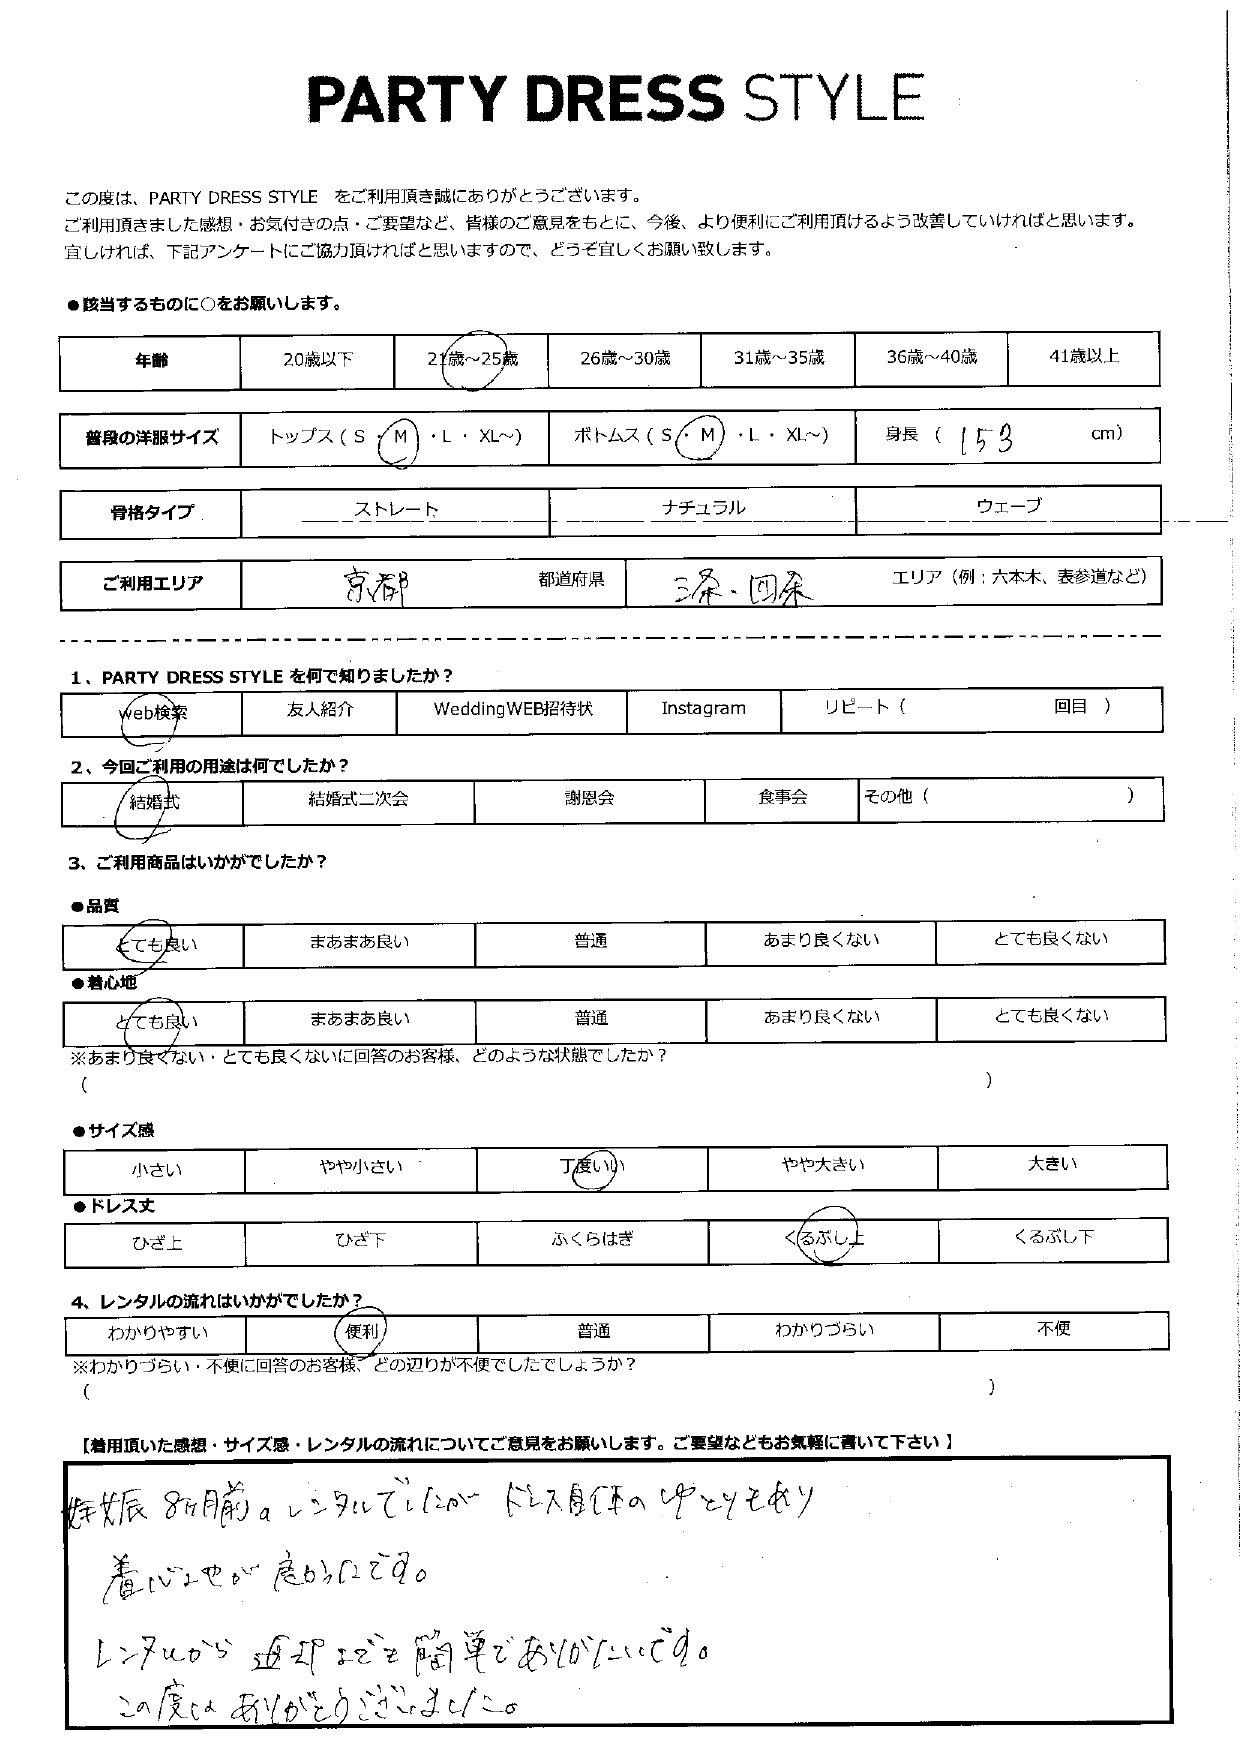 PARTY DRESS STYLE
この度は、PARTY DRESS STYLE をご利用頂き誠にありがとうございます。
ご利用頂きました感想・お気付きの点・ご要望など、皆様のご意見をもとに、今後、より便利にご利用頂けるよう改善していければと思います。
宜しければ、下記アンケートにご協力頂ければと思いますので、どうぞ宜しくお願い致します。
●該当するものに○をお願いします。
年齢 20歳以下 21歳～25歳 26歳～30歳 31歳～35歳 36歳～40歳 41歳以上
普段の洋服サイズ トップス（ S ・ M ・L ・ XL～） ボトムス（ S ・ M ・L ・ XL～） 身長 （ 153 cm）
骨格タイプ ストレート ナチュラル ウェーブ
ご利用エリア 京都 都道府県 三条・四条 エリア（例；六本木、表参道など）
1、PARTY DRESS STYLE を何で知りましたか？
web検索 友人紹介 WeddingWEB招待状 Instagram リピート（ 回目 ）
2、今回ご利用の用途は何でしたか？
結婚式 結婚式二次会 謝恩会 食事会 その他（ ）
3、ご利用商品はいかがでしたか？
●品質
とても良い まあまあ良い 普通 あまり良くない とても良くない
●着心地
とても良い まあまあ良い 普通 あまり良くない とても良くない
※あまり良くない・とても良くないに回答のお客様、どのような状態でしたか？
（ ）
●サイズ感
小さい やや小さい 丁度いい やや大きい 大きい
●ドレス丈
ひざ上 ひざ下 ふくらはぎ くるぶし上 くるぶし下
4、レンタルの流れはいかがでしたか？
わかりやすい 便利 普通 わかりづらい 不便
※わかりづらい・不便に回答のお客様、どの辺りが不便でしたでしょうか？
（ ）
【着用頂いた感想・サイズ感・レンタルの流れについてご意見をお願いします。ご要望などもお気軽に書いて下さい】
妊娠 8ヶ月前のレンタルでしたが ドレス自体のゆとりもあり
着心地が良かったです。
レンタルから 返却までも簡単でありがたいです。
この度は ありがとうございました。